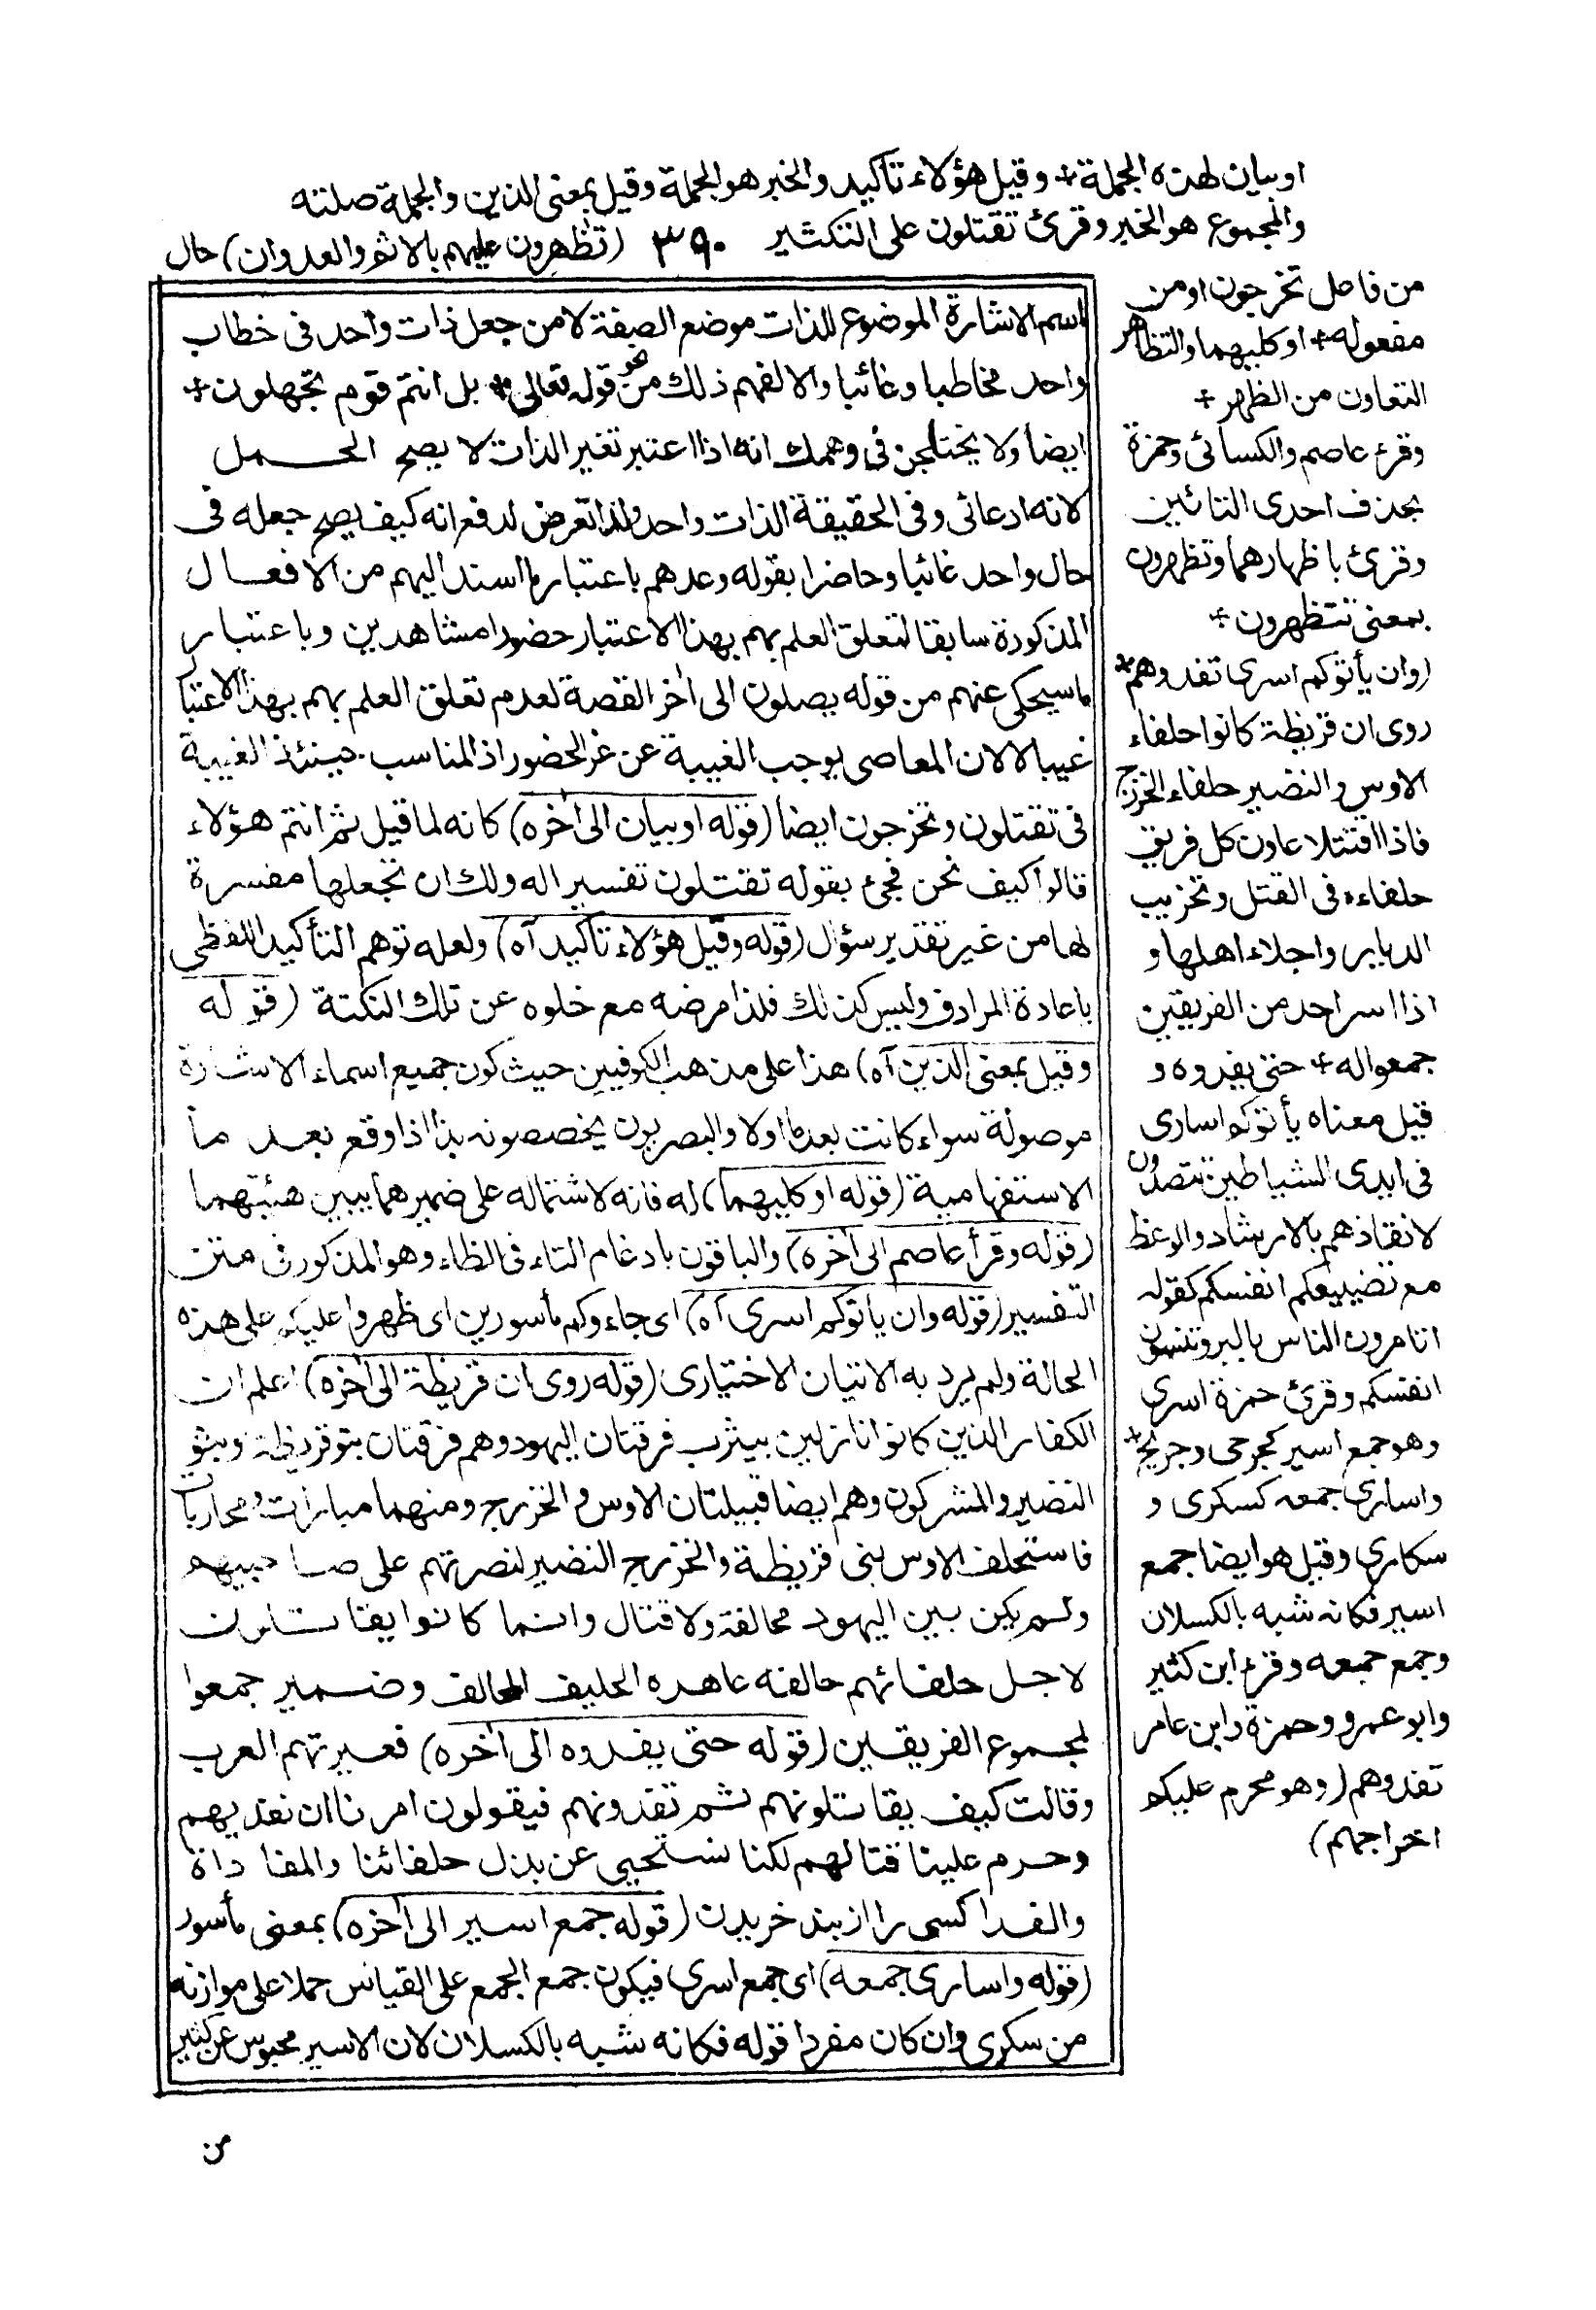 او بيان لهذه الجملة + وقيل هؤلاء تأكيد والخبر هو الجملة وقيل بمعنى الذين والجملة صلته
والمجموع هو الخبر وقرئ تقتلون على التكثير ٣٩٠ (تظهرون عليهم بالاثم والعدوان) حال
من فاعل تخرجون او من
مفعوله + او كليهما والتظاهر
التعاون من الظهر +
وقرء عاصم والكسائى وحمزة
بحذف احدى التائين
وقرئ باظهارهما وتظهرون
بمعنى تتظهرون +
(وان يأتوكم اسرى تفدوهم +
روى ان قريظة كانوا حلفاء
الاوس والنضير حلفاء الخزرج
فاذا اقتتلا عاون كل فريق
حلفاءه فى القتل وتخريب
الديار واجلاء اهلها و
اذا اسر احد من الفريقين
جمعوا له + حتى يفدوه و
قيل معناه يأتوكم اسارى
فى ايدى الشياطين تتصدون
لانقاذهم بالارشاد والوعظ
مع تضييعكم انفسكم كقوله
اتامرون الناس بالبر وتنسون
انفسكم وقرئ حمزة اسرى
وهو جمع اسير كجرحى وجريح +
واسارى جمعه كسكرى و
سكارى وقيل هو ايضا جمع
اسير فكانه شبه بالكسلان
وجمع جمعه وقرء ابن كثير
وابو عمرو وحمزة وابن عامر
تفدوهم (وهو محرم عليكم
اخراجهم)
اسم الاشارة الموضوع للذات موضع الصفة لا من جعل ذات واحد فى خطاب
واحد مخاطبا وغائبا والا لفهم ذلك من نحو قوله تعالى + بل انتم قوم تجهلون +
ايضا ولا يختلجن فى وهمك انه اذا اعتبر تغير الذات لا يصح الحمل
لانه ادعائى وفى الحقيقة الذات واحد ولذا تعرض لدفع انه كيف يصح جعله فى
حال واحد غائبا وحاضرا بقوله وعدهم باعتبار ما اسند اليهم من الافعال
المذكورة سابقا لتعلق العلم بهم بهذا الاعتبار حضورا مشاهدين وباعتبار
ما سيحكى عنهم من قوله يصلون الى اخر القصة لعدم تعلق العلم بهم بهذا الاعتبار
غيبا لا لان المعاصى يوجب الغيبة عن عز الحضور اذ المناسب حينئذ الغيبة
فى تقتلون وتخرجون ايضا (قوله او بيان الى اخره) كانه لما قيل ثم انتم هؤلاء
قالوا كيف نحن فجئ بقوله تقتلون تفسيرا له ولك ان تجعلها مفسرة
لها من غير تقدير سؤال (قوله وقيل هؤلاء تأكيد آه) ولعله توهم التأكيد اللفظى
باعادة المرادف وليس كذلك فلذا مرضه مع خلوه عن تلك النكتة (قوله
وقيل بمعنى الذين آه) هذا على مذهب الكوفيين حيث كون جميع اسماء الاشارة
موصولة سواء كانت بعد ما اولا والبصريون يخصصونه بذا اذا وقع بعد ما
الاستفهامية (قوله او كليهما) له فانه لاشتماله على ضميرهما يبين هيئتهما
(قوله وقرأ عاصم الى اخره) والباقون بادغام التاء فى الظاء وهو المذكور فى متن
التفسير (قوله وان يأتوكم اسرى آه) اى جاءوكم مأسورين اى ظهروا عليكم على هذه
الحالة ولم يرد به الاتيان الاختيارى (قوله روى ان قريظة الى اخره) اعلم ان
الكفار الذين كانوا نازلين بيثرب فرقتان اليهود وهم فرقتان بنو قريظة وبنو
النضير والمشركون وهم ايضا قبيلتان الاوس والخزرج ومنهما مبارزات ومحاربات
فاستحلف الاوس بنى قريظة والخزرج النضير لنصرتهم على صاحبيهم
ولم يكن بين اليهود مخالفة ولا قتال وانما كانوا يقاتلون
لاجل حلفائهم حالفه عاهده الحليف المحالف وضمير جمعوا
لمجموع الفريقين (قوله حتى يفدوه الى اخره) فعيرتهم العرب
وقالت كيف يقاتلونهم ثم تفدونهم فيقولون امرنا ان نفديهم
وحرم علينا قتالهم لكنا نستحيى عن بذل حلفائنا والمفاداة
والفدا كسى را از بند خريدن (قوله جمع اسير الى اخره) بمعنى مأسور
(قوله واسارى جمعه) اى جمع اسرى فيكون جمع الجمع على القياس حملا على موازنه
من سكرى وان كان مفردا قوله فكانه شبه بالكسلان لان الاسير محبوس عن كثير
من